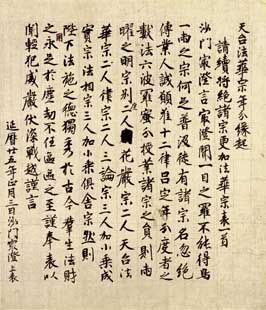 天台法華宗年分縁起
請續將絶諸宗更加法華宗表一首
沙門最澄言最澄聞一目之羅不能得鳥
一兩之宗何足普汲徒有諸宗名忽絶
傳業人誠願准十二律呂定年分度者之
數法六波羅蜜分授業諸宗之員則兩
曜之明宗別度二人花嚴宗二人天台法
華宗二人律宗二人三論宗三人加小乘成
實宗法相宗三人加小乘倶舍宗然則
陛下法施之德獨秀於古今群生法財
之用永足於塵劫不任區區之至謹奉表以
聞輕犯威嚴伏深戰越謹言
延暦廿五年正月三日沙門最澄上表